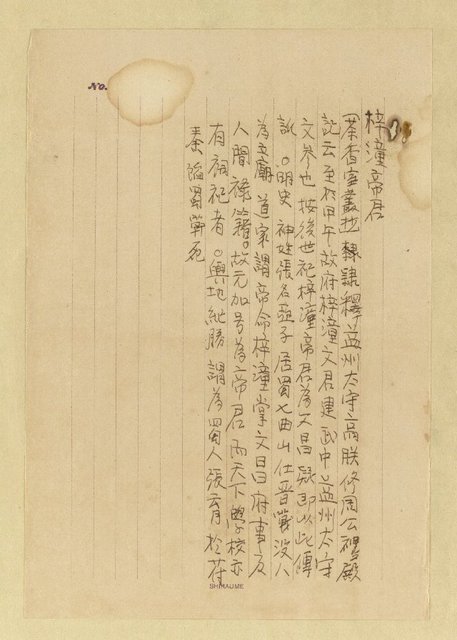 No.
梓潼帝君
茶香室叢抄 隸釋益州太守高朕修周公禮殿
記云至於甲午故府梓潼文君建武中益州太守
文參也 按後世祀梓潼帝君為文昌疑即以此傳
訛 。明史 神姓張名亞子居蜀七曲山仕晉戰沒人
為立廟 道家謂帝命梓潼掌文昌府事及
人間祿籍。故元加号為帝君 而天下學校亦
有祠祀者 。輿地紀勝 謂為蜀人張育於苻
秦陷蜀戰死
SHIMAJME